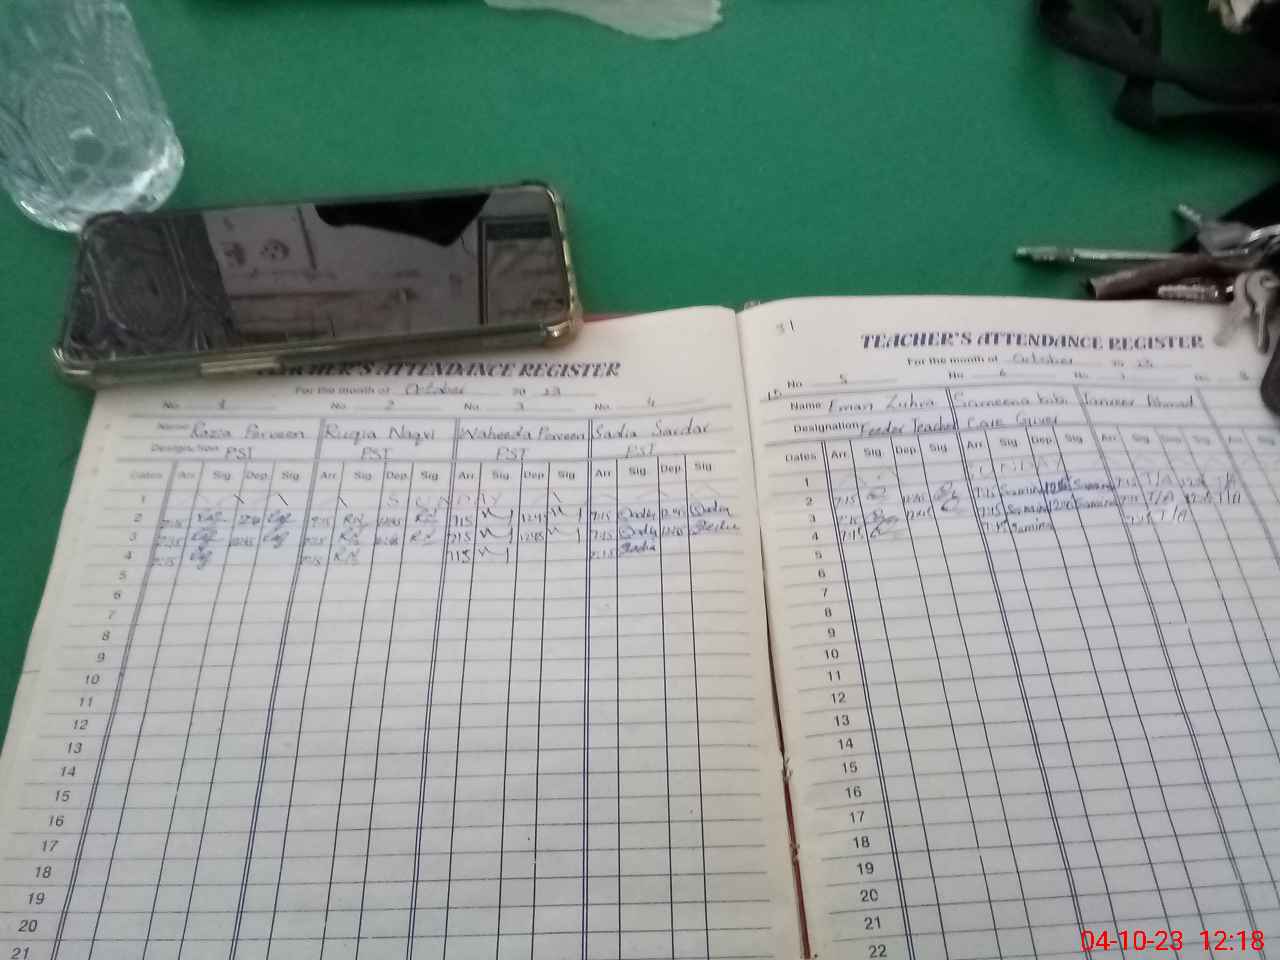 TEACHER'S ATTENDANCE REGISTER
For the month of October 2023
No. 1 No. 2 No. 3 No. 4
Name Razia Parveen Ruqia Naqvi Waheeda Parveen Sadia Sardar
Designation PST PST PST PST
Dates Arr. Sig. Dep. Sig. Arr. Sig. Dep. Sig. Arr. Sig. Dep. Sig. Arr. Sig. Dep. Sig.
1 SUNDAY
2 7:15 7:15 RN 12:45 RN 7:15 12:45 7:15 12:45
3 7:15 12:45 7:15 RN 12:45 RN 7:15 12:45 7:15 12:45 Sadia
4 7:15 7:15 RN 7:15 7:15 Sadia
5
6
7
8
9
10
11
12
13
14
15
16
17
18
19
20
21
31
TEACHER'S ATTENDANCE REGISTER
For the month of October 2023
No. 5 No. 6 No. 7 No. 8
Name Eman Zuhra Sameena bibi Tanveer Ahmad
Designation Feeder Teacher Care Giver
Dates Arr. Sig. Dep. Sig. Arr. Sig. Dep. Sig. Arr. Sig. Dep. Sig. Arr. Sig.
1 SUNDAY
2 7:15 12:45 7:15 Samina Samina 7:15 T/A T/A
3 7:15 12:45 7:15 Samina Samina 7:15 T/A T/A
4 7:15 7:15 Samina 7:15 T/A
5
6
7
8
9
10
11
12
13
14
15
16
17
18
19
20
21
22
04-10-23 12:18